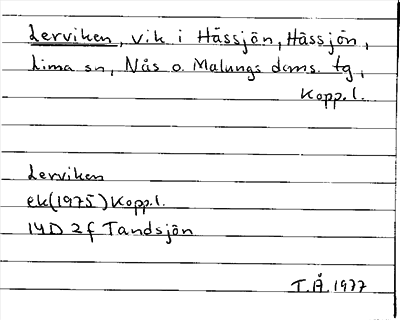 Lerviken, vik i Hässjön, Hässjön,
Lima sn, Nås o. Malungs doms. tg,
Kopp. l.
Lerviken
ek (1975) Kopp. l.
14D 2f Tandsjön
T.Å. 1977